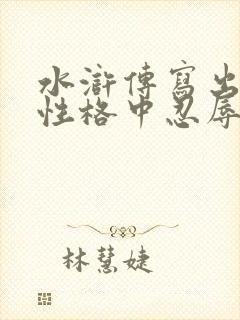 水滸傳寫出
性格中忍辱
林慧婕